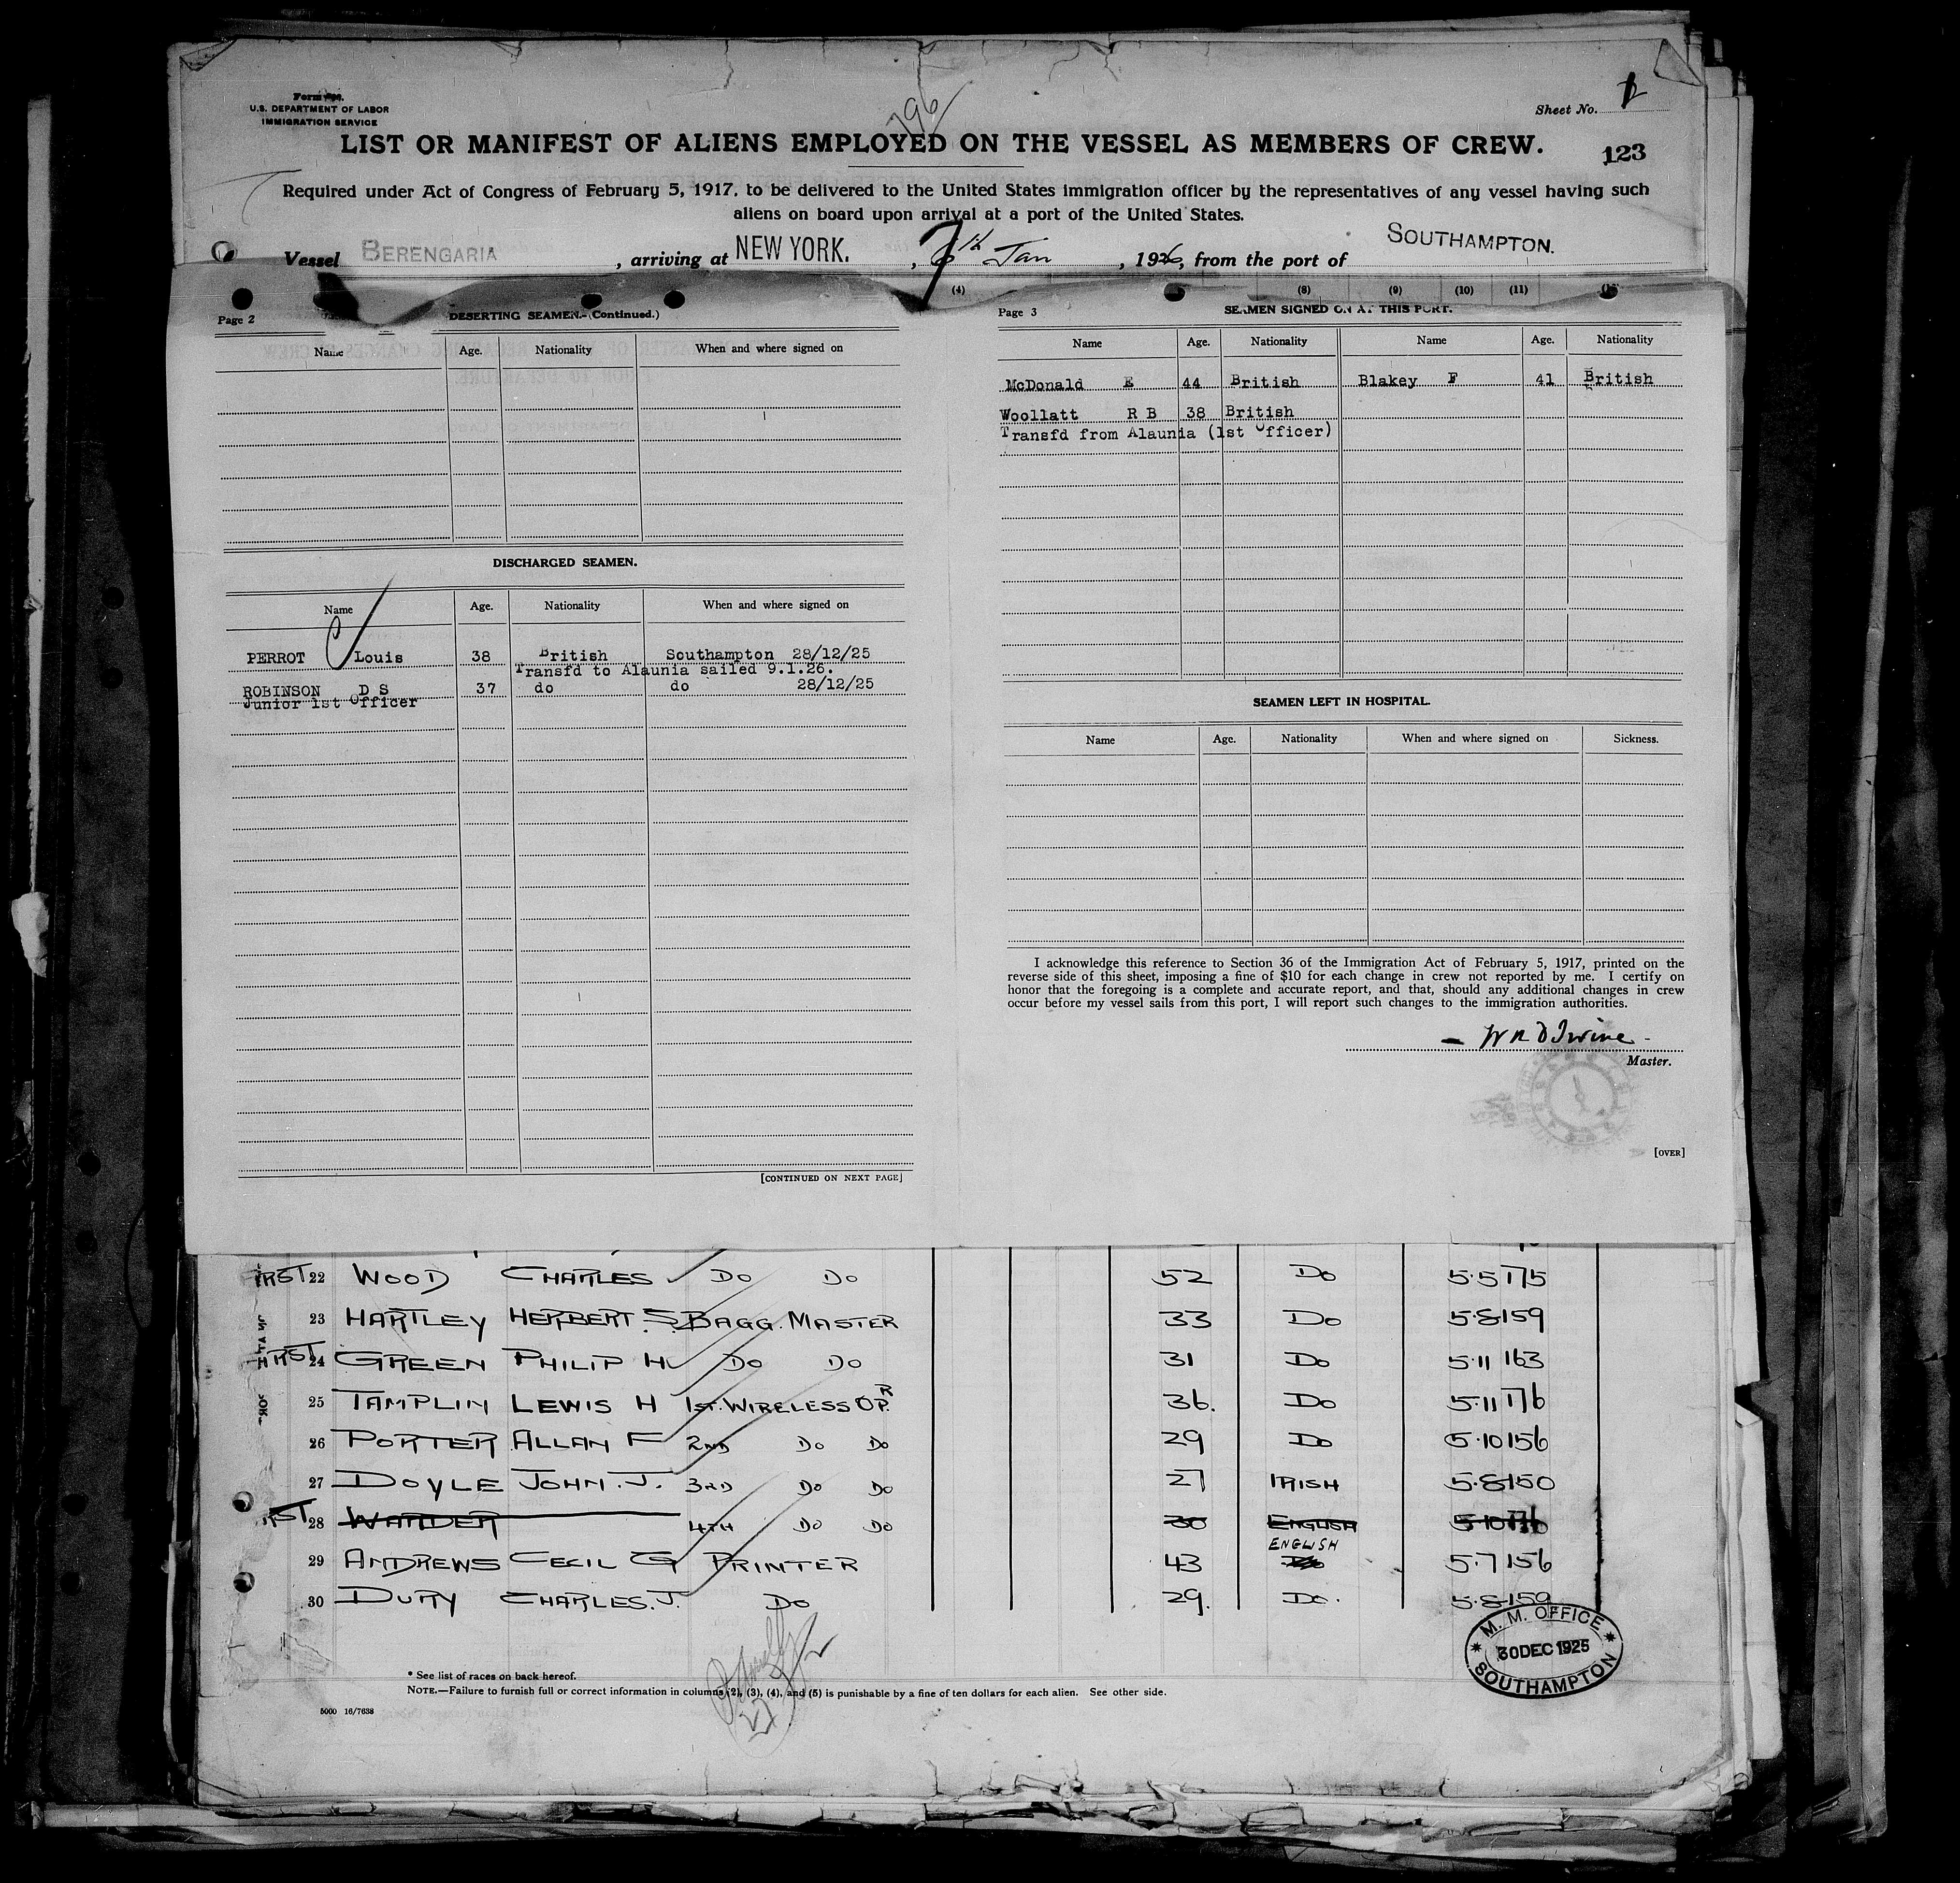 Sheet No. 1
U.S. DEPARTMENT OF LABOR
IMMIGRATION SERVICE
796
LIST OR MANIFEST OF ALIENS EMPLOYED ON THE VESSEL AS MEMBERS OF CREW.
123
Required under Act of Congress of February 5, 1917, to be delivered to the United States immigration officer by the representatives of any vessel having such
aliens on board upon arrival at a port of the United States.
Vessel BERENGARIA, arriving at NEW YORK., 7th Jan, 1926, from the port of SOUTHAMPTON.
(4) (8) (9) (10) (11)
Page 2 DESERTING SEAMEN.-(Continued.)
Name Age. Nationality When and where signed on
DISCHARGED SEAMEN.
Name Age. Nationality When and where signed on
PERROT Louis 38 British Southampton 28/12/25
Transfd to Alaunia sailed 9.1.26.
ROBINSON D S 37 do do 28/12/25
Junior 1st Officer
[CONTINUED ON NEXT PAGE]
Page 3 SEAMEN SIGNED ON AT THIS PORT.
Name Age. Nationality Name Age. Nationality
McDonald E 44 British Blakey F 41 British
Woollatt R B 38 British
Transfd from Alaunia (1st Officer)
SEAMEN LEFT IN HOSPITAL.
Name Age. Nationality When and where signed on Sickness.
I acknowledge this reference to Section 36 of the Immigration Act of February 5, 1917, printed on the
reverse side of this sheet, imposing a fine of $10 for each change in crew not reported by me. I certify on
honor that the foregoing is a complete and accurate report, and that, should any additional changes in crew
occur before my vessel sails from this port, I will report such changes to the immigration authorities.
W R D Irvine
Master.
[OVER]
22 WOOD CHARLES DO DO 52 DO 5.5 175
23 HARTLEY HERBERT. S. BAGG. MASTER 33 DO 5.8 159
24 GREEN PHILIP H DO DO 31 DO 5.11 163
25 TAMPLIN LEWIS H 1ST. WIRELESS OPR. 36. DO 5.11 176
26 PORTER ALLAN F 2ND DO DO 29 DO 5.10 156
27 DOYLE JOHN. J. 3RD DO DO 27 IRISH 5.8 150
28 WARDER 4TH DO DO 30 ENGLISH 5.10 176
29 ANDREWS CECIL G PRINTER 43 ENGLISH 5.7 156
30 DURY CHARLES. J. DO 29. DO. 5.8 159
M. M. OFFICE
30 DEC 1925
SOUTHAMPTON
* See list of races on back hereof.
NOTE.—Failure to furnish full or correct information in columns (2), (3), (4), and (5) is punishable by a fine of ten dollars for each alien. See other side.
5000 16/7638